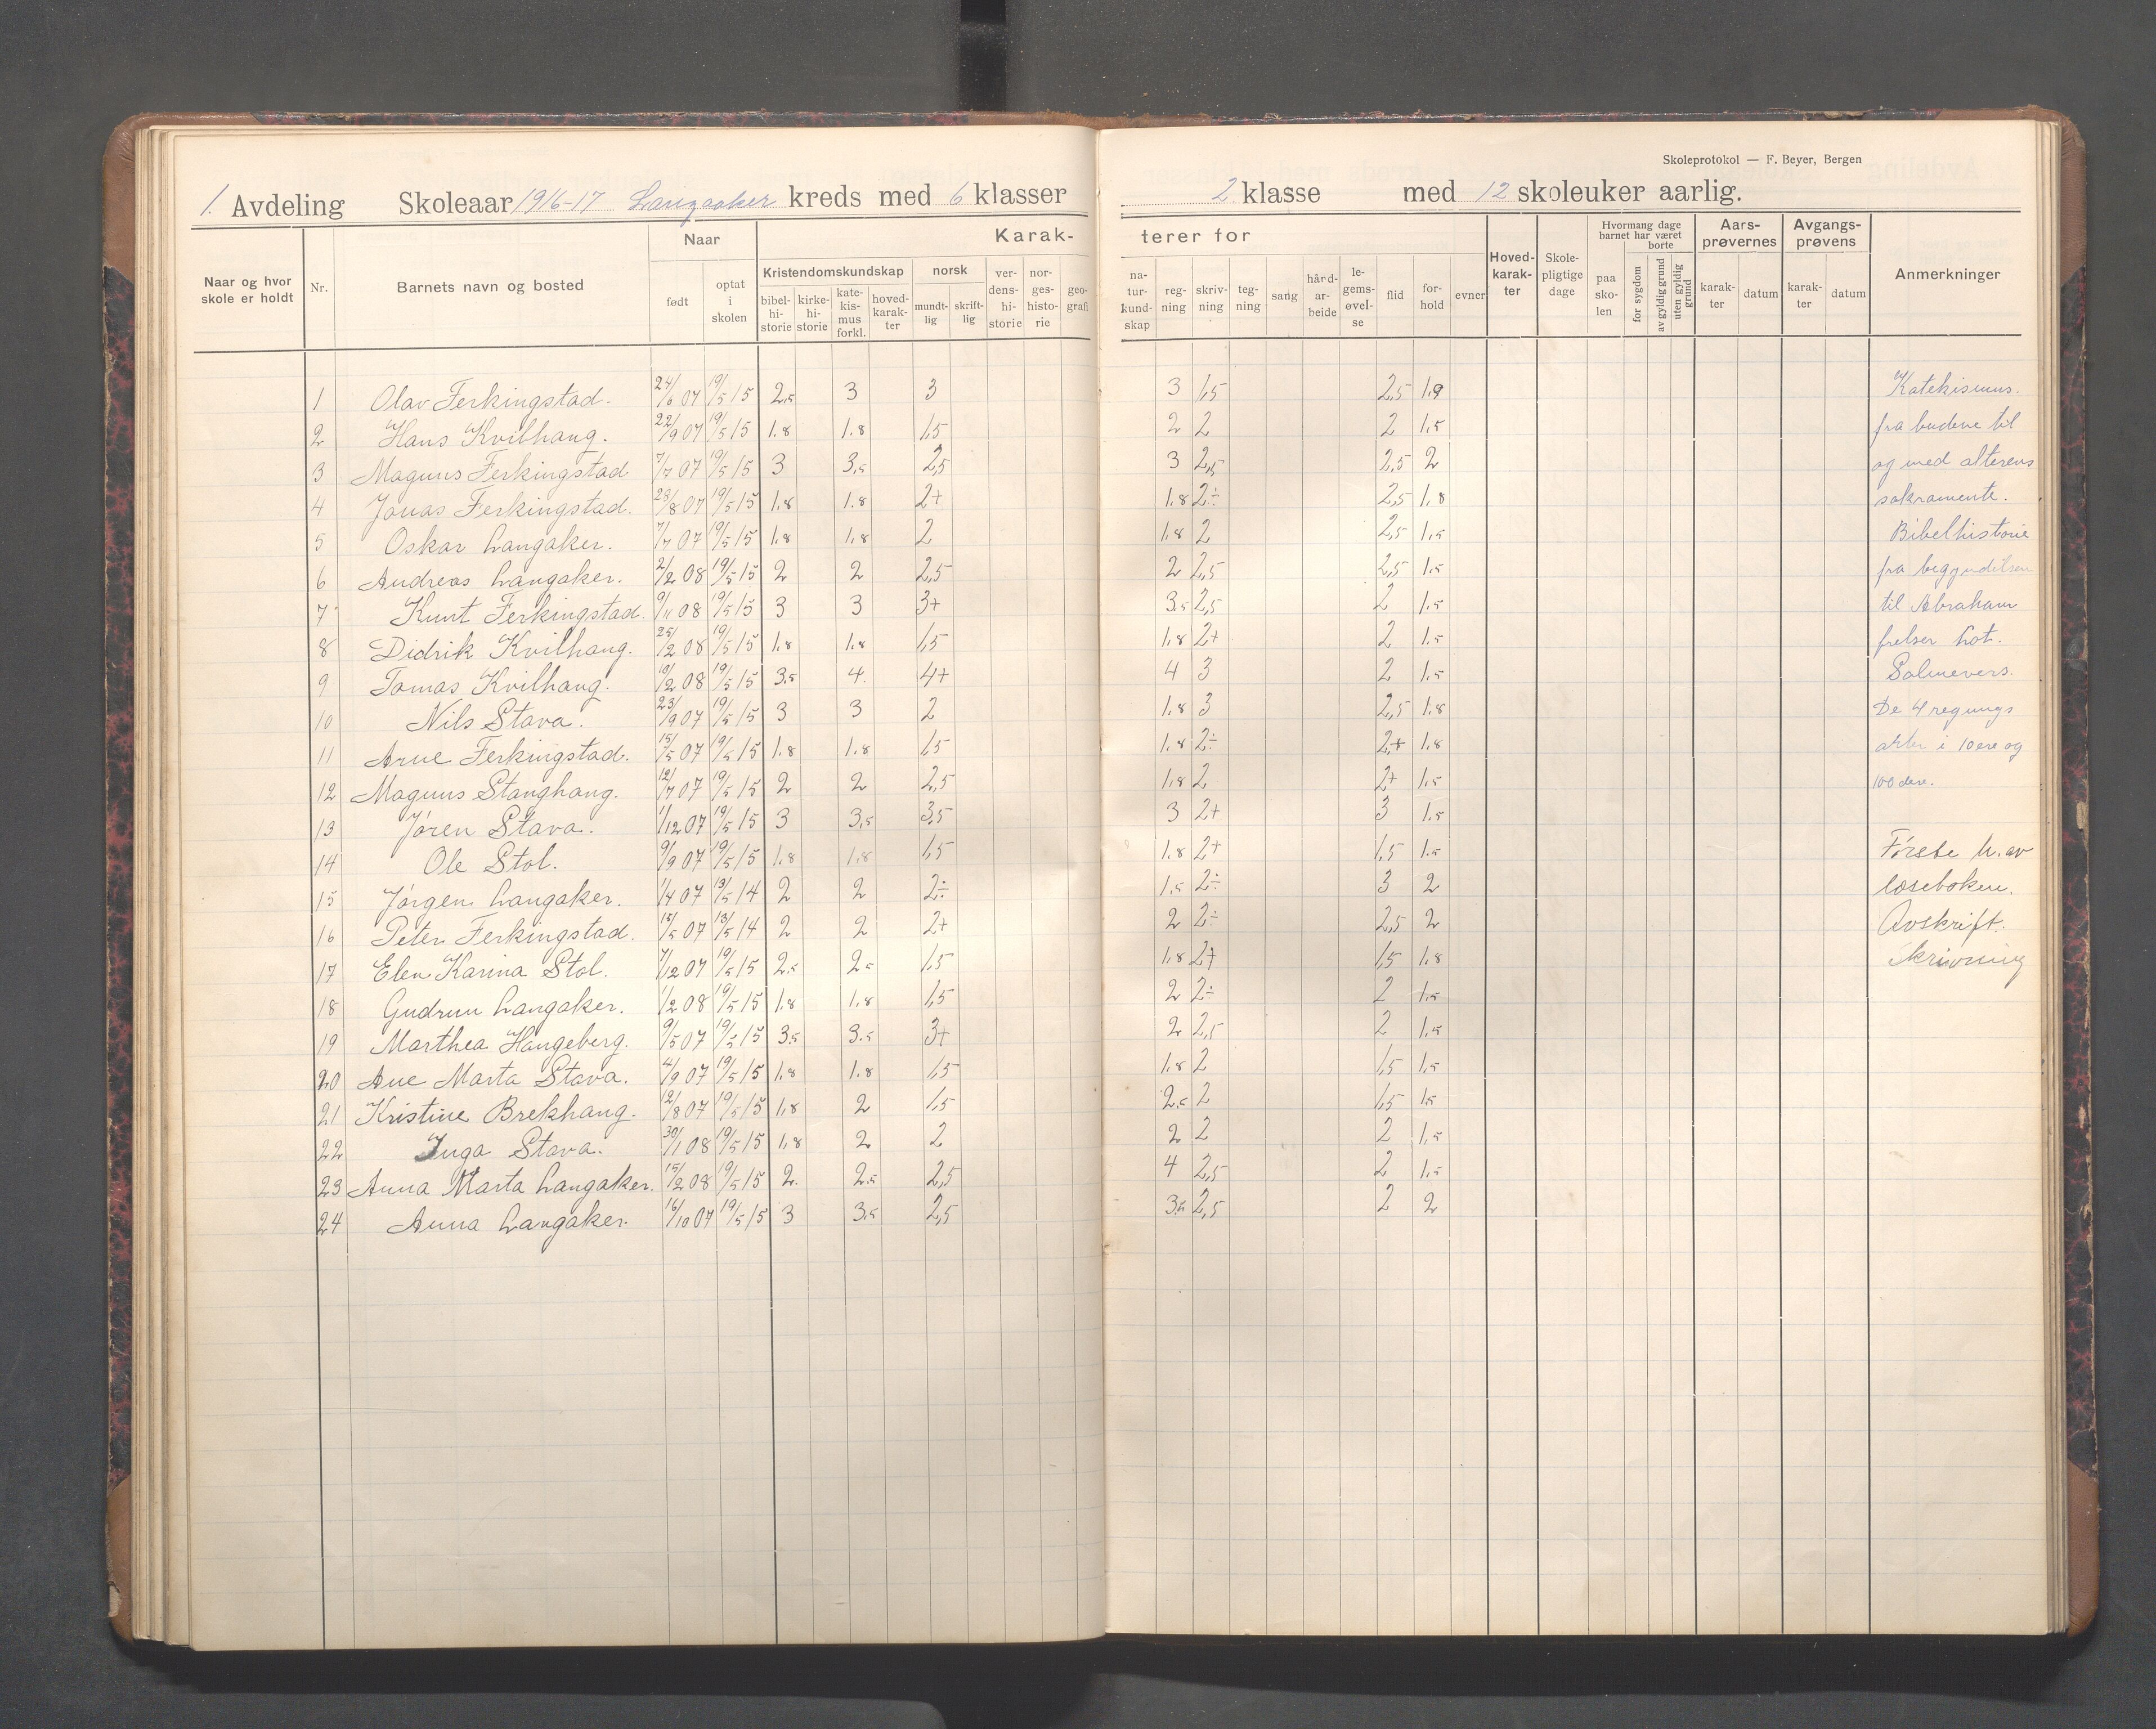 Skoleprotokol — F. Beyer, Bergen
1. Avdeling Skoleaar 1916-17 Langaaker kreds med 6 klasser 2 klasse med 12 skoleuker aarlig.
Naar og hvor skole er holdt Nr. Barnets navn og bosted Naar født optat i skolen Karakterer for Kristendomskundskap bibelhistorie kirkehistorie katekismus forkl. hovedkarakter norsk mundtlig skriftlig verdenshistorie norgeshistorie geografi naturkundskap regning skrivning tegning sang hårdarbeide legemsøvelse flid forhold evner Hovedkarakter Skolepligtige dage Hvormang dage barnet har været paa skolen borte for sygdom av gyldig grund uten gyldig grund Aarsprøvernes karakter datum Avgangsprøvens karakter datum Anmerkninger
1 Olav Ferkingstad. 24/6 07 19/5 15 2.5 3 3 3 1,5 2,5 1.9 Katekismus.
2 Hans Kvilhaug. 22/9 07 19/5 15 1.8 1.8 1,5 2 2 2 1.5 fra budene til
3 Magnus Ferkingstad 7/7 07 19/5 15 3 3.5 2,5 3 2,5 2,5 2 og med alterens
4 Jonas Ferkingstad. 28/8 07 19/5 15 1.8 1.8 2+ 1.8 2÷ 2,5 1.8 sakramente.
5 Oskar Langaker. 7/7 07 19/5 15 1.8 1.8 2 1.8 2 2,5 1.5 Bibelhistorie
6 Andreas Langaker. 2/2 08 19/5 15 2 2 2,5 2 2,5 2,5 1.5 fra begyndelsen
7 Knut Ferkingstad. 9/11 08 19/5 15 3 3 3+ 3.5 2,5 2 1.5 til Abraham
8 Didrik Kvilhaug. 25/2 08 19/5 15 1.8 1.8 1,5 1.8 2+ 2 1.5 frelser Lot.
9 Tomas Kvilhaug. 19/2 08 19/5 15 3.5 4. 4+ 4 3 2 1.5 Salmevers.
10 Nils Stava. 23/9 07 19/5 15 3 3 2 1.8 3 2,5 1.8 De 4 regnings
11 Arne Ferkingstad. 15/5 07 19/5 15 1.8 1.8 1,5 1.8 2÷ 2,+ 1.8 arter i 10ere og
12 Magnus Stanghaug. 12/7 07 19/5 15 2 2 2,5 1.8 2 2+ 1.5 100dere.
13 Jøren Stava. 1/12 07 19/5 15 3 3.5 3,5 3 2+ 3 1.5
14 Ole Stol. 9/9 07 19/5 15 1.8 1.8 1,5 1.8 2+ 1,5 1.5 Første h. av
15 Jørgen Langaker. 1/4 07 13/5 14 2 2 2÷ 1.5 2÷ 3 2 læseboken.
16 Peter Ferkingstad. 15/5 07 13/5 14 2 2 2+ 2 2÷ 2,5 2 Avskrift.
17 Elen Karina Stol. 7/12 07 19/5 15 2.5 2.5 1,5 1.8 2+ 1,5 1.8 Skrivning
18 Gudrun Langaker. 1/2 08 19/5 15 1.8 1.8 1,5 2 2÷ 2 1.5
19 Marthea Haugeberg. 9/5 07 19/5 15 3.5 3.5 3+ 2 2,5 2 1.5
20 Ane Marta Stava. 4/9 07 19/5 15 1.8 1.8 1,5 1.8 2 1,5 1.5
21 Kristine Brekhaug. 12/8 07 19/5 15 1.8 2 1,5 2.5 2 1,5 1.5
22 Inga Stava. 30/1 08 19/5 15 1.8 2 2 2 2 2 1.5
23 Anna Marta Langaker. 15/2 08 19/5 15 2. 2.5 2,5 4 2,5 2 1.5
24 Anna Langaker. 16/10 07 19/5 15 3 3.5 2,5 3.5 2,5 2 2